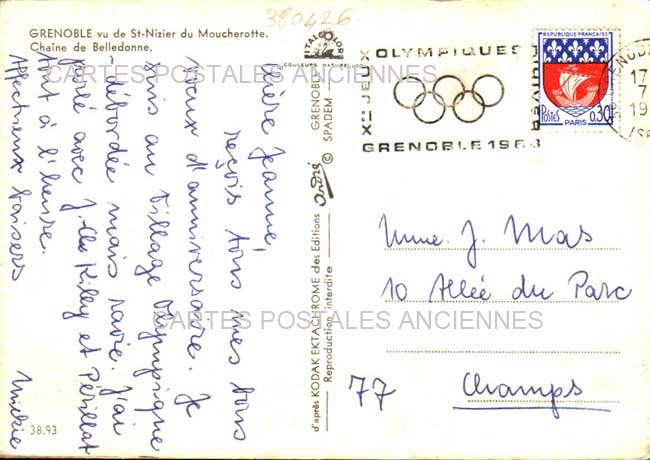 380426
GRENOBLE vu de St-Nizier du Moucherotte.
Chaine de Belledonne.
Chère Jeanne,
reçois tous mes bons
vœux d'anniversaire. Je
suis au Village Olympique
- débordée mais ravie. J'ai
parlé avec J. Cl. Killy et Périllat
tout à l'heure.
Affectueux baisers
Mickie
38.93
ITALCOLOR
COULEURS NATURELLES
GRENOBLE
SPADEM
©
André
d'après KODAK EKTACHROME des Editions
Reproduction interdite
Xes JEUX
OLYMPIQUES
D'HIVER
GRENOBLE 1968
REPUBLIQUE FRANÇAISE
POSTES
0,30
PARIS
GRENOBLE
17
7
19
Mme. J. Mas
10 Allée du Parc
77 Champs
CARTES POSTALES ANCIENNES
CARTES POSTALES ANCIENNES